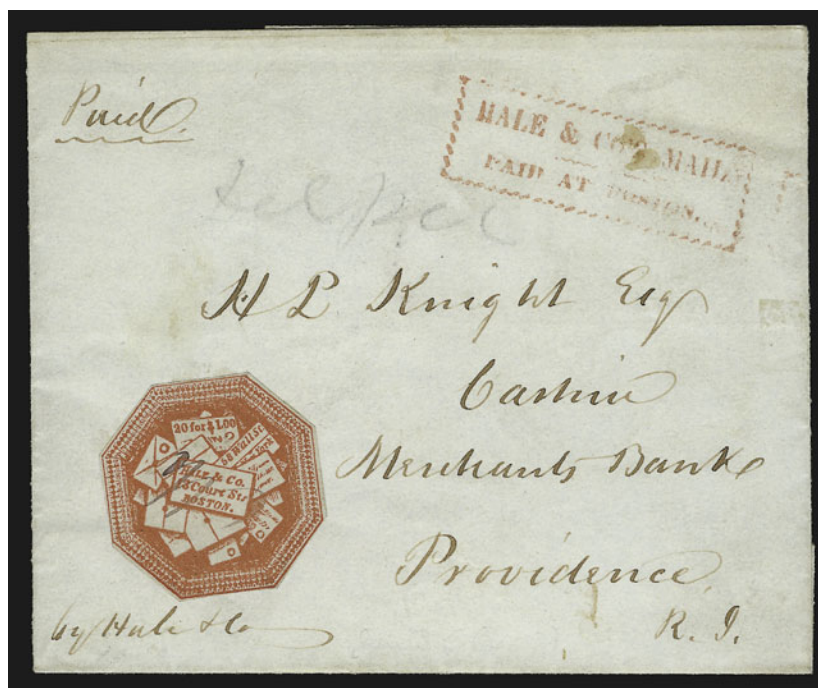 Paid.
HALE & CO'S MAIL
PAID AT BOSTON
H P Knight Esq
Cashier
Merchants Bank
Providence
R. I.
20 for $1.00
Wall St
York
& Co.
Court Str
BOSTON.
by Hale & Co